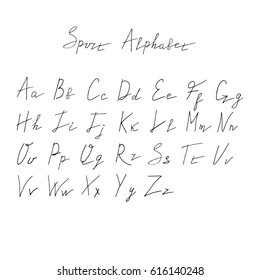 Sport Alphabet
Aa Bb Cc Dd Ee Ff Gg
Hh Ii Jj Kk Ll Mm Nn
Oo Pp Qq Rr Ss Tt Vv
Vv Ww Xx Yy Zz
shutterstock.com · 616140248